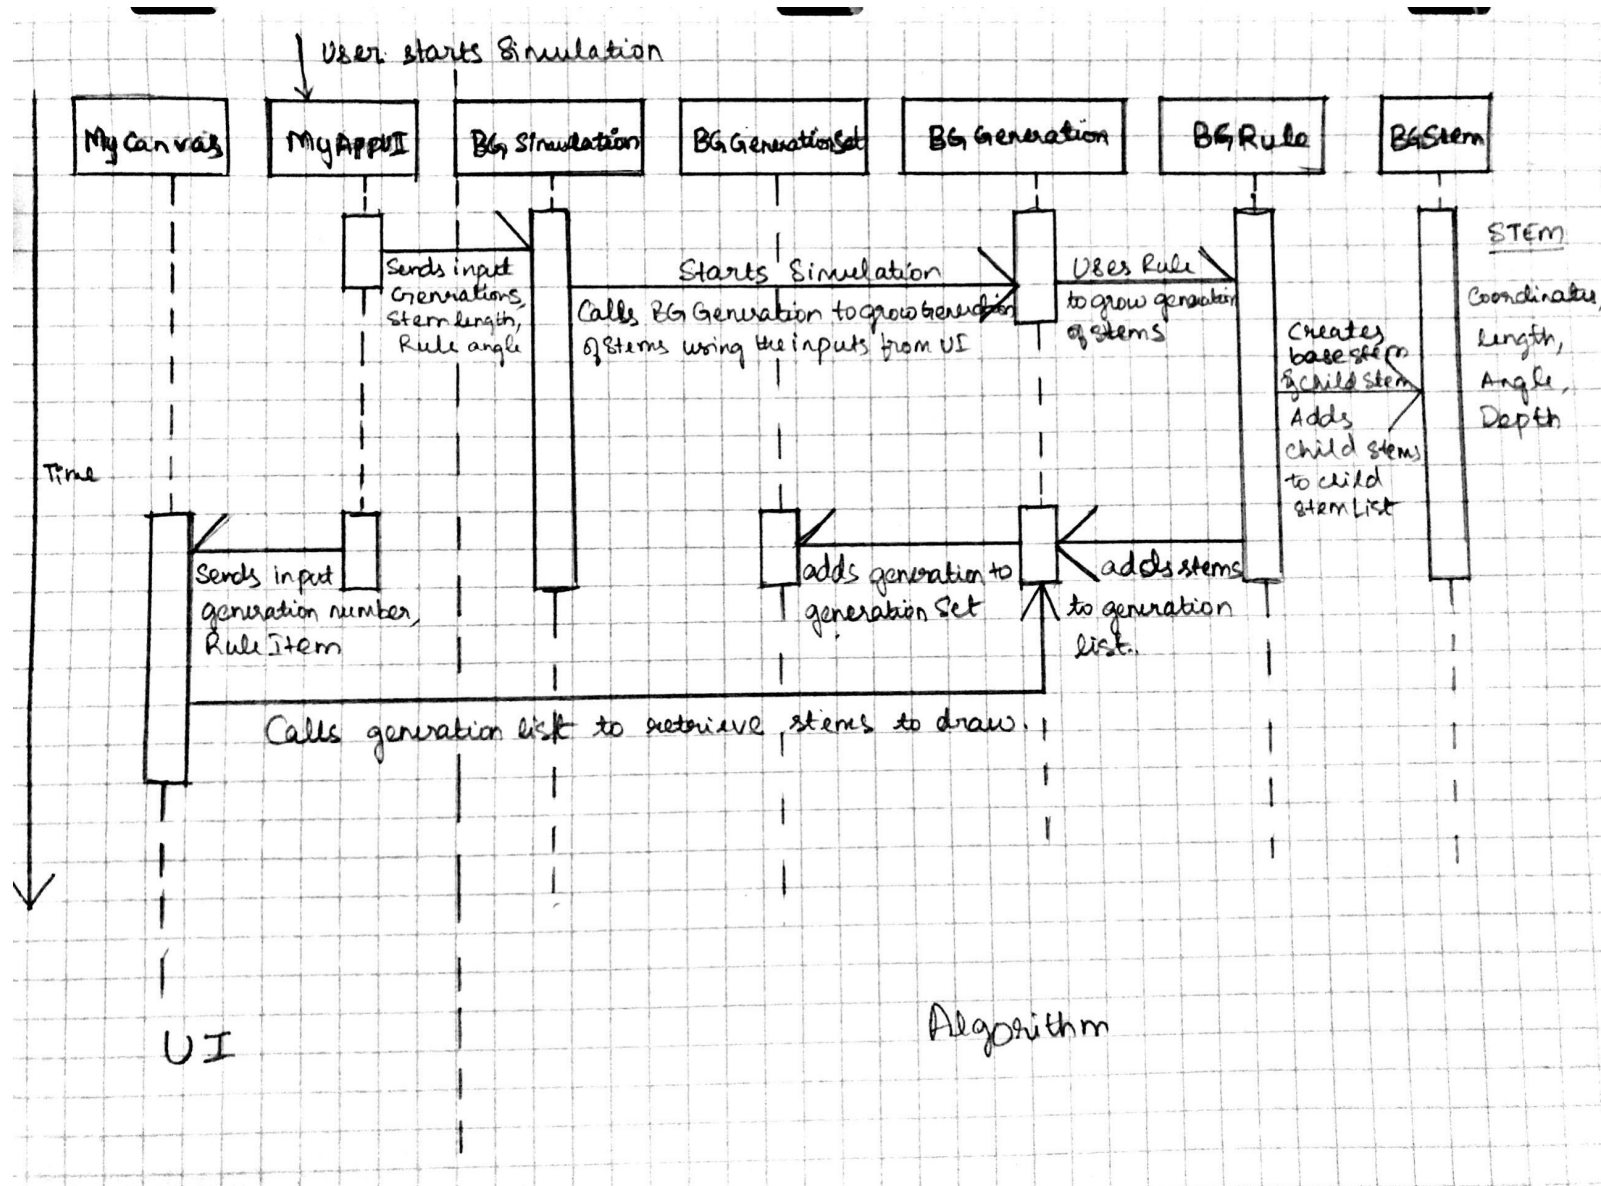 User starts Simulation
MyCanvas
MyAppUI
BG Simulation
BG GenerationSet
BG Generation
BGRule
BGStem
Sends input
Generations,
Stem length,
Rule angle
Starts Simulation
Calls BG Generation to grow Generation
of Stems using the inputs from UI
Uses Rule
to grow generation
of stems
Creates
base stem
& child stem
Adds
child stems
to child
stem List
STEM
Coordinates,
length,
Angle,
Depth
Time
Sends input
generation number,
Rule Item
adds generation to
generation Set
adds stems
to generation
list.
Calls generation list to retrieve stems to draw.
UI
Algorithm